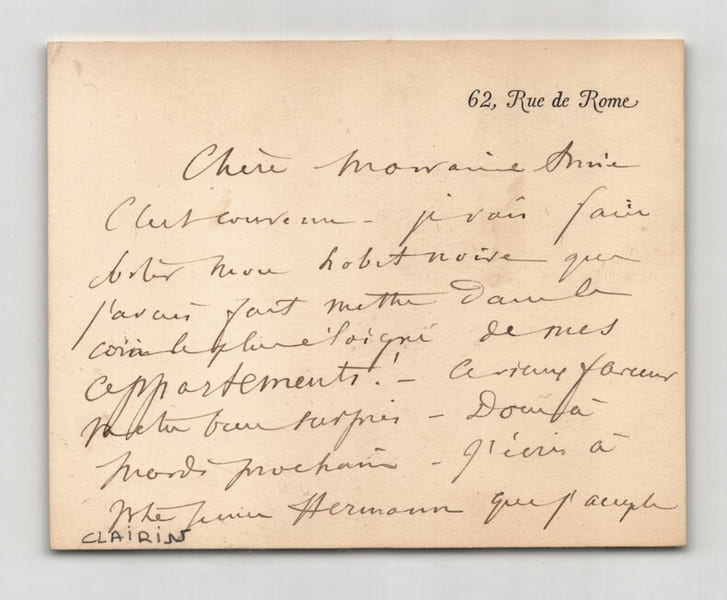 62, Rue de Rome
Chère Marraine Amie
C'est convenu - je vais faire
mon habit noir que
j'avais fait mettre dans le
coin le plus éloigné de mes
appartements! - Ce vieux farceur
m'a bien surpris - Donc à
mardi prochain - J'écris à
Hermann que j'accepte
CLAIRIN